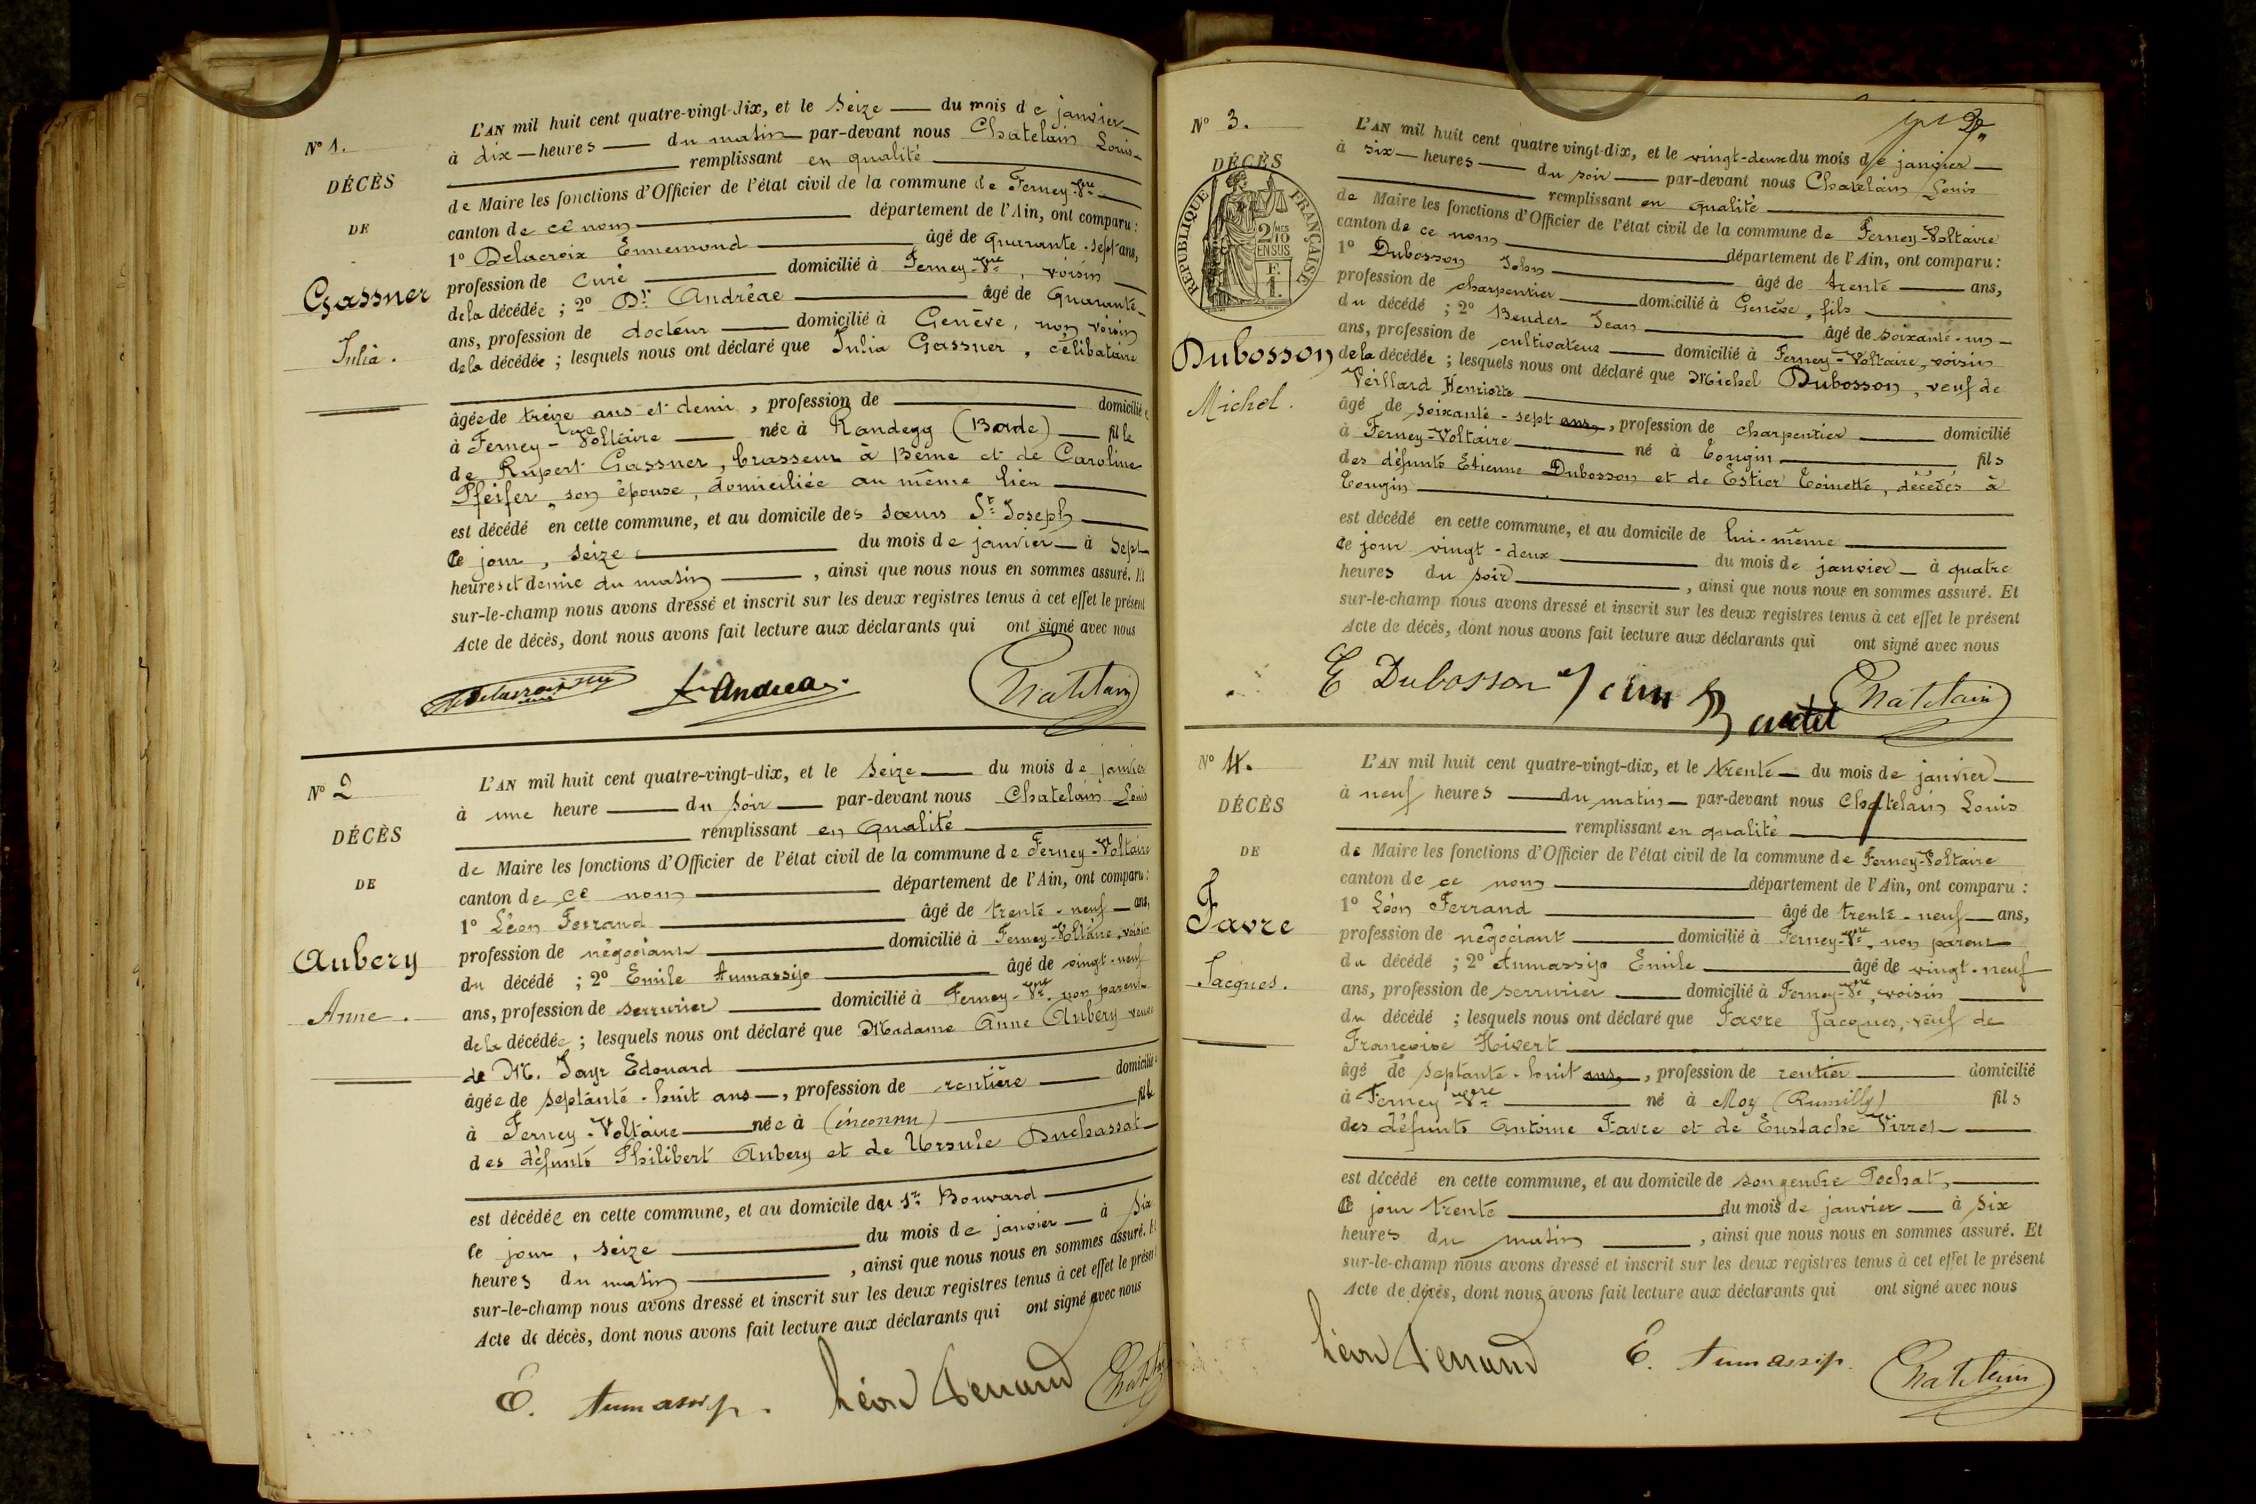 N° 1.
DÉCÈS
DE
Gassner
Julia.
L'AN mil huit cent quatre-vingt-dix, et le Seize du mois de janvier
à dix heures du matin par-devant nous Chatelain Louis
remplissant en qualité
de Maire les fonctions d'Officier de l'état civil de la commune de Ferney-Vre
canton de ce nom département de l'Ain, ont comparu :
1° Delacroix Ennemond âgé de quarante-sept ans,
profession de Curé domicilié à Ferney-Vre, voisin
de la décédée ; 2° Dr Andréae âgé de quarante
ans, profession de docteur domicilié à Genève, non voisin
de la décédée ; lesquels nous ont déclaré que Julia Gassner, célibataire
âgée de treize ans et demi, profession de domiciliée
à Ferney-Voltaire née à Randegg (Bade) fille
de Rupert Gassner, brasseur à Berne et de Caroline
Pfeifer, son épouse, domiciliée au même lieu
est décédé en cette commune, et au domicile des sœurs St Joseph
Ce jour, seize du mois de janvier à Sept
heures et demie du matin, ainsi que nous nous en sommes assuré. Et
sur-le-champ nous avons dressé et inscrit sur les deux registres tenus à cet effet le présent
Acte de décès, dont nous avons fait lecture aux déclarants qui ont signé avec nous
Delacroix Andreae Chatelain
N° 2
DÉCÈS
DE
Aubery
Anne.
L'AN mil huit cent quatre-vingt-dix, et le Seize du mois de janvier
à une heure du soir par-devant nous Chatelain Louis
remplissant en qualité
de Maire les fonctions d'Officier de l'état civil de la commune de Ferney-Voltaire
canton de ce nom département de l'Ain, ont comparu :
1° Léon Ferrand âgé de trente-neuf ans,
profession de négociant domicilié à Ferney-Voltaire, voisin
du décédé ; 2° Emile Aumassip âgé de vingt-neuf
ans, profession de serrurier domicilié à Ferney-Vre, non parent
de la décédée ; lesquels nous ont déclaré que Madame Anne Aubery veuve
de M. Jayr Edouard
âgée de septante-huit ans, profession de rentière domiciliée
à Ferney-Voltaire née à (inconnu) fille
des défunts Philibert Aubery et de Ursule Duchassat
est décédée en cette commune, et au domicile du Sr Bouvard
Ce jour, seize du mois de janvier à Six
heures du matin, ainsi que nous nous en sommes assuré. Et
sur-le-champ nous avons dressé et inscrit sur les deux registres tenus à cet effet le présent
Acte de décès, dont nous avons fait lecture aux déclarants qui ont signé avec nous
E. Aumassip. Léon Ferrand
N° 3.
DÉCÈS
RÉPUBLIQUE FRANÇAISE
2/10MES EN SUS
F. 1.
Dubosson
Michel.
L'AN mil huit cent quatre vingt-dix, et le vingt-deux du mois de janvier
à six heures du soir par-devant nous Chatelain Louis
remplissant en qualité
de Maire les fonctions d'Officier de l'état civil de la commune de Ferney-Voltaire
canton de ce nom département de l'Ain, ont comparu :
1° Dubosson John âgé de trente ans,
profession de charpentier domicilié à Genève, fils
du décédé ; 2° Jean âgé de soixante-un
ans, profession de cultivateur domicilié à Ferney-Voltaire, voisin
de la décédée ; lesquels nous ont déclaré que Michel Dubosson, veuf de
Veillard Henriette
âgé de soixante-sept ans, profession de charpentier domicilié
à Ferney-Voltaire né à Tougin fils
des défunts Etienne Dubosson et de Estier Toinette, décédés à
Tougin
est décédé en cette commune, et au domicile de lui-même
Ce jour vingt-deux du mois de janvier à quatre
heures du soir, ainsi que nous nous en sommes assuré. Et
sur-le-champ nous avons dressé et inscrit sur les deux registres tenus à cet effet le présent
Acte de décès, dont nous avons fait lecture aux déclarants qui ont signé avec nous
Dubosson Chatelain
N° 4.
DÉCÈS
DE
Favre
Jacques.
L'AN mil huit cent quatre-vingt-dix, et le trente du mois de janvier
à neuf heures du matin par-devant nous Chatelain Louis
remplissant en qualité
de Maire les fonctions d'Officier de l'état civil de la commune de Ferney-Voltaire
canton de ce nom département de l'Ain, ont comparu :
1° Léon Ferrand âgé de trente-neuf ans,
profession de négociant domicilié à Ferney-Vre, non parent
du décédé ; 2° Aumassip Emile âgé de vingt-neuf
ans, profession de serrurier domicilié à Ferney-Vre, voisin
du décédé ; lesquels nous ont déclaré que Favre Jacques, veuf de
Françoise Hivert
âgé de septante-huit ans, profession de rentier domicilié
à Ferney-Vre né à Moy (Rumilly) fils
des défunts Antoine Favre et de Eustache Virret
est décédé en cette commune, et au domicile de son gendre Pochat,
Ce jour trente du mois de janvier à Six
heures du matin, ainsi que nous nous en sommes assuré. Et
sur-le-champ nous avons dressé et inscrit sur les deux registres tenus à cet effet le présent
Acte de décès, dont nous avons fait lecture aux déclarants qui ont signé avec nous
Léon Ferrand E. Aumassip. Chatelain